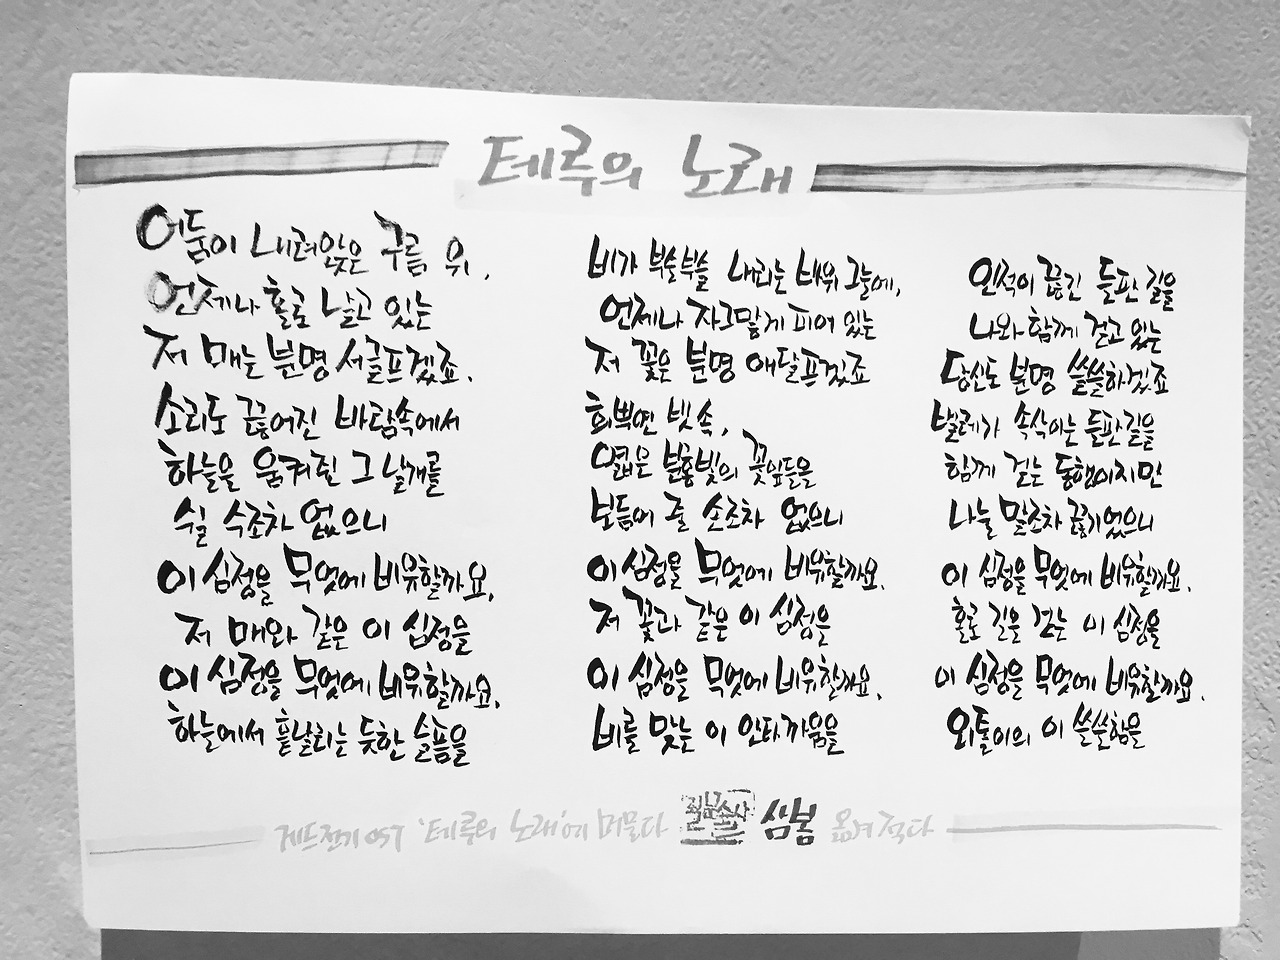 테루의 노래
어둠이 내려앉은 구름 위,
언제나 홀로 날고 있는
저 매는 분명 서글프겠죠.
소리도 끊어진 바람속에서
하늘을 움켜쥔 그 날개를
쉴 수조차 없으니
이 심정을 무엇에 비유할까요.
저 매와 같은 이 심정을
이 심정을 무엇에 비유할까요.
하늘에서 흩날리는 듯한 슬픔을
비가 부슬부슬 내리는 바위 그늘에,
언제나 자그맣게 피어 있는
저 꽃은 분명 애달프겠죠
희뿌연 빗속,
엷은 분홍빛의 꽃잎들을
보듬어 줄 손조차 없으니
이 심정을 무엇에 비유할까요.
저 꽃과 같은 이 심정을
이 심정을 무엇에 비유할까요.
비를 맞는 이 안타까움을
인적이 끊긴 들판 길을
나와 함께 걷고 있는
당신도 분명 쓸쓸하겠죠
벌레가 속삭이는 들판길을
함께 걷는 동행이지만
나눌 말조차 끊기었으니
이 심정을 무엇에 비유할까요.
홀로 길을 걷는 이 심정을
이 심정을 무엇에 비유할까요.
외톨이의 이 쓸쓸함을
게드전기 OST '테루의 노래'에 머물다 삼봉 옮겨 적다